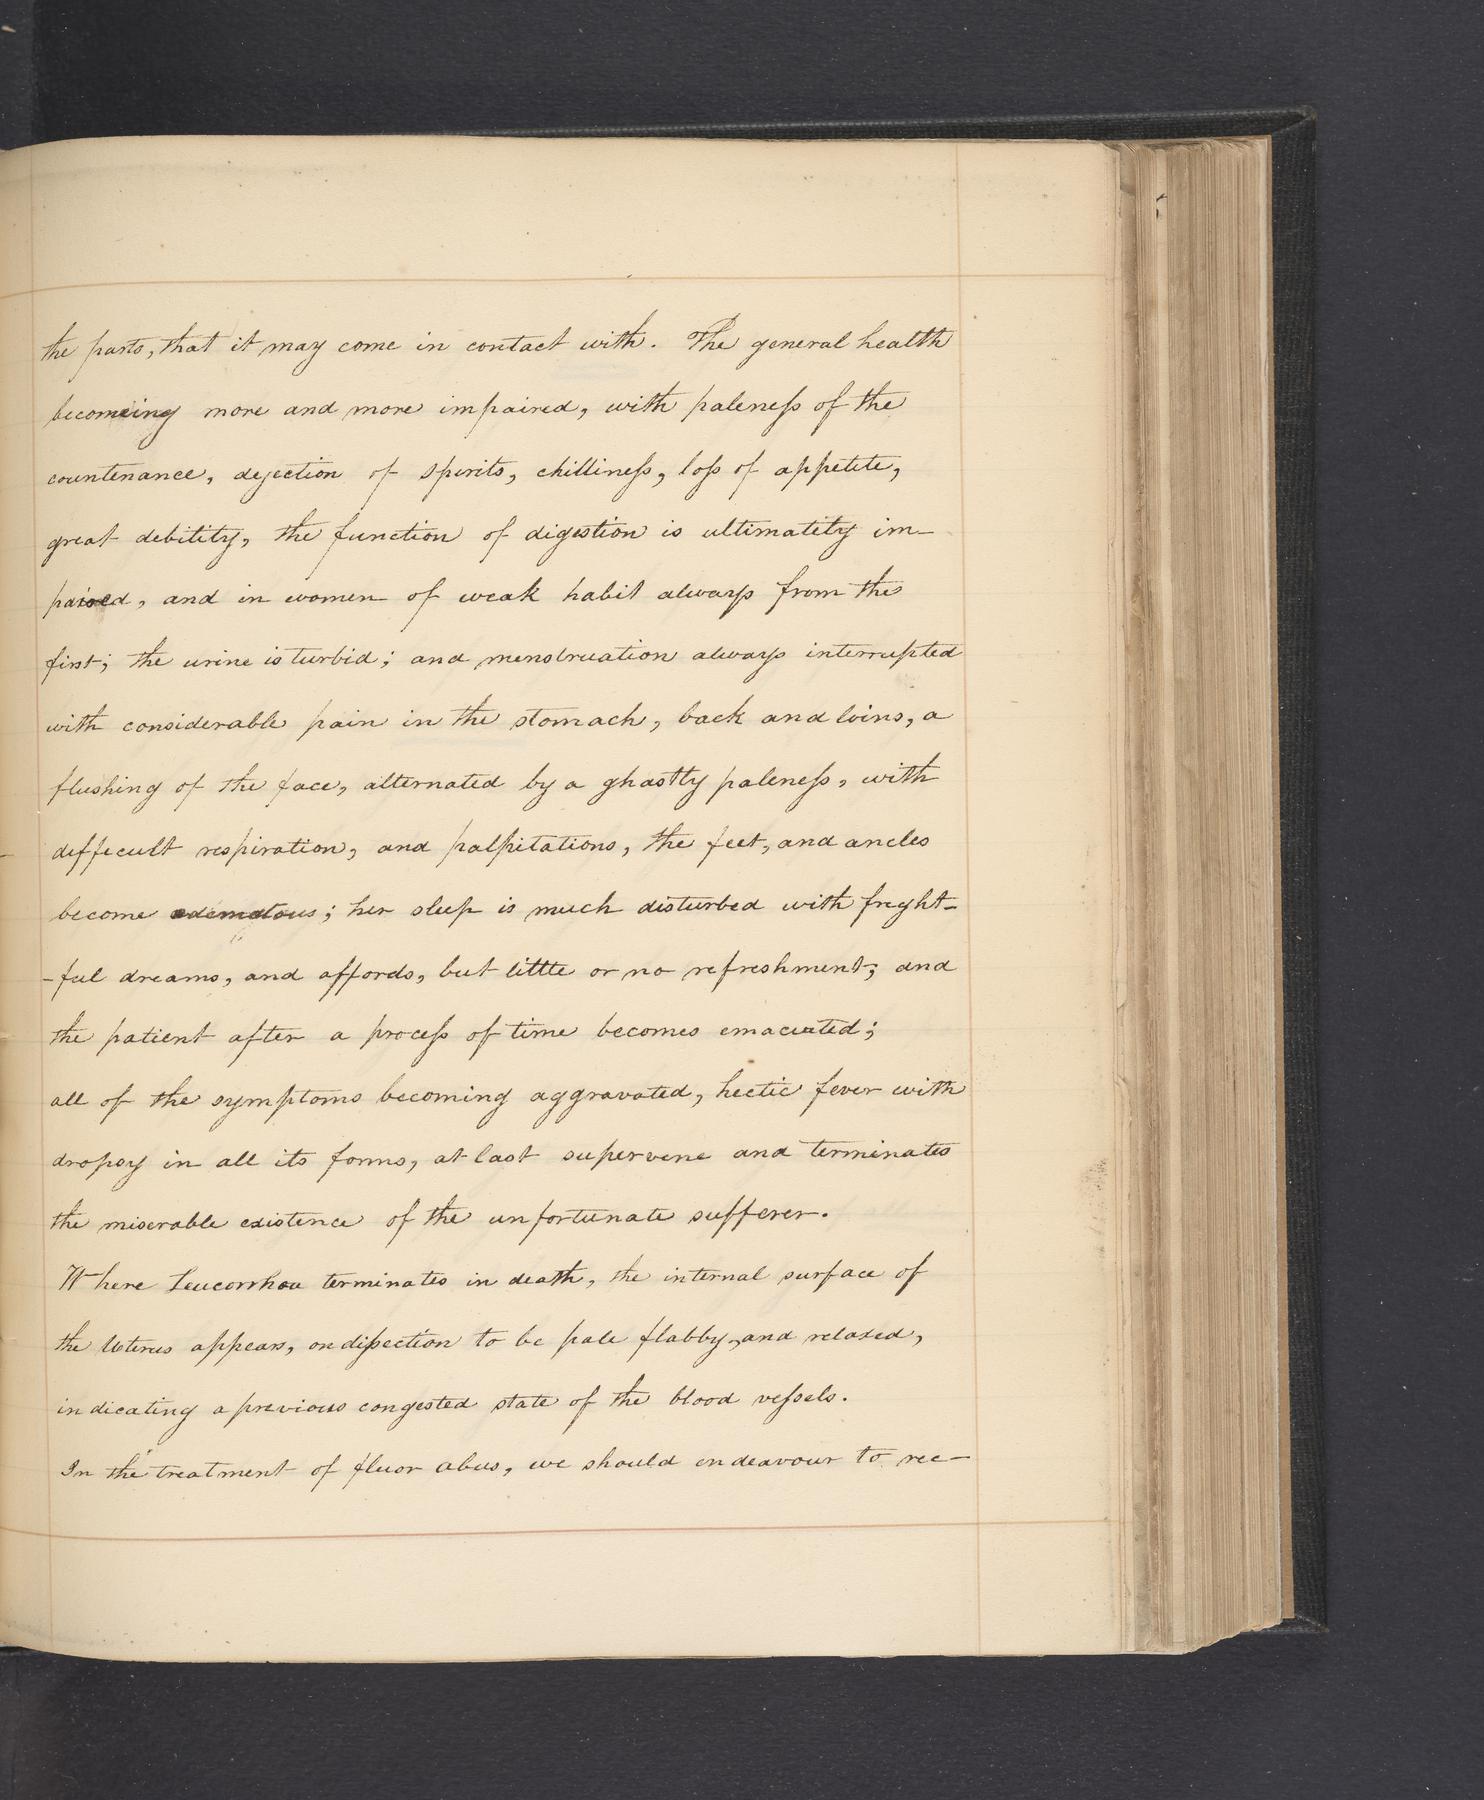 the parts, that it may come in contact with. The general health
becomeing more and more impaired, with paleness of the
countenance, dejection of spirits, chilliness, loss of appetite,
great debility, the function of digestion is ultimatily im-
paired, and in women of weak habit always from the
first; the urine is turbid; and menstruation always interrupted
with considerable pain in the stomach, back and loins, a
flushing of the face, alternated by a ghastly paleness, with
difficult respiration, and palpitations, the feet, and ancles
become edematous; her sleep is much disturbed with fright-
-ful dreams, and affords, but little or no refreshment; and
the patient after a process of time becomes emaciated;
all of the symptoms becoming aggravated, hectic fever with
dropsy in all its forms, at last supervene and terminates
the miserable existence of the unfortunate sufferer.
Where Leucorrhoa terminates in death, the internal surface of
the Uterus appears, on dissection to be pale flabby, and relaxed,
indicating a previous congested state of the blood vessels.
In the treatment of fluor abus, we should endeavour to rec-